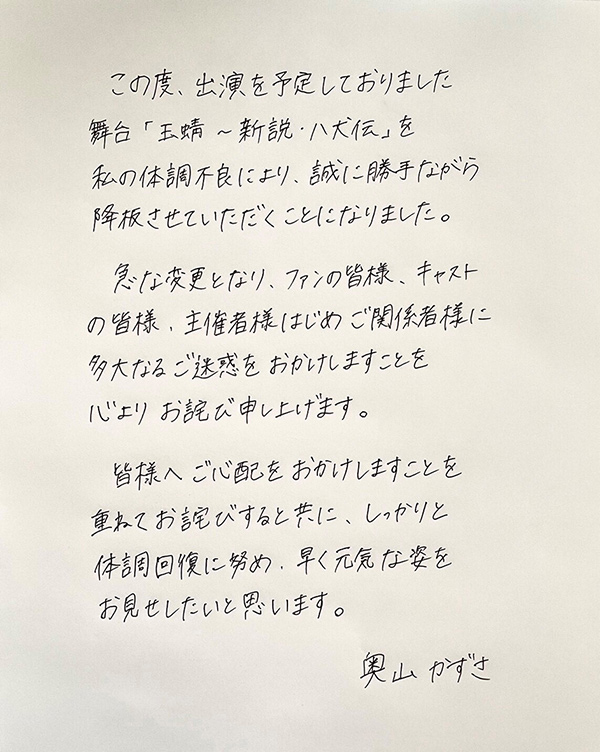 この度、出演を予定しておりました
舞台「玉蜻 ~ 新説・八犬伝」を
私の体調不良により、誠に勝手ながら
降板させていただくことになりました。
急な変更となり、ファンの皆様、キャスト
の皆様、主催者様はじめご関係者様に
多大なるご迷惑をおかけしますことを
心よりお詫び申し上げます。
皆様へご心配をおかけしますことを
重ねてお詫びすると共に、しっかりと
体調回復に努め、早く元気な姿を
お見せしたいと思います。
奥山かずさ